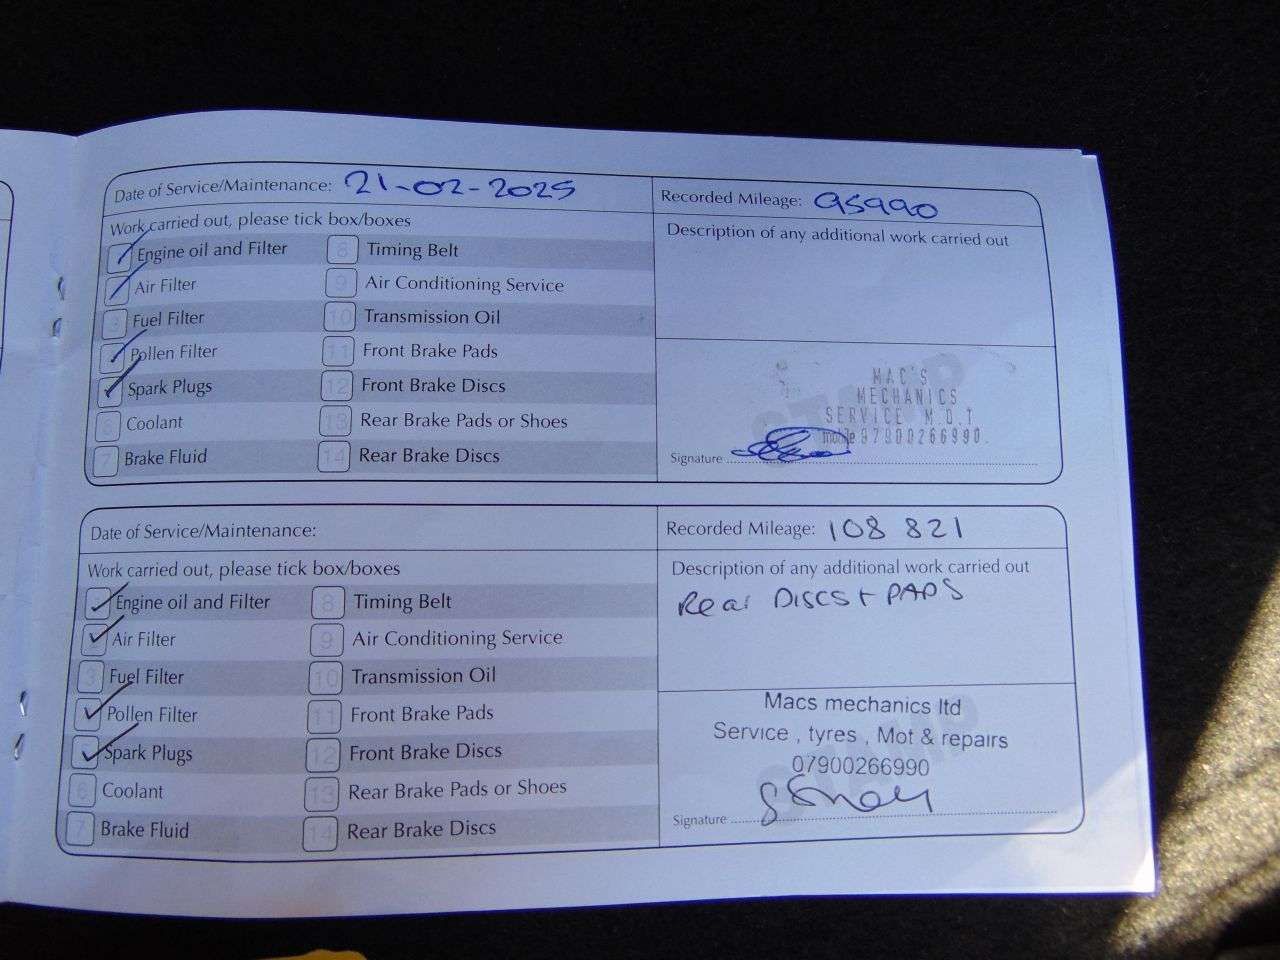 Date of Service/Maintenance: 21-02-2025
Recorded Mileage: 95990
Work carried out, please tick box/boxes
Description of any additional work carried out
Engine oil and Filter
8 Timing Belt
Air Filter
9 Air Conditioning Service
3 Fuel Filter
10 Transmission Oil
Pollen Filter
11 Front Brake Pads
Spark Plugs
12 Front Brake Discs
6 Coolant
13 Rear Brake Pads or Shoes
7 Brake Fluid
14 Rear Brake Discs
STAMP
MAC'S
MECHANICS
SERVICE M.O.T
mobile 07900266990.
Signature
Date of Service/Maintenance:
Recorded Mileage: 108 821
Work carried out, please tick box/boxes
Description of any additional work carried out
Rear DISCS + PADS
Engine oil and Filter
8 Timing Belt
Air Filter
9 Air Conditioning Service
3 Fuel Filter
10 Transmission Oil
Pollen Filter
11 Front Brake Pads
Spark Plugs
12 Front Brake Discs
6 Coolant
13 Rear Brake Pads or Shoes
7 Brake Fluid
14 Rear Brake Discs
STAMP
Macs mechanics ltd
Service , tyres , Mot & repairs
07900266990
Signature